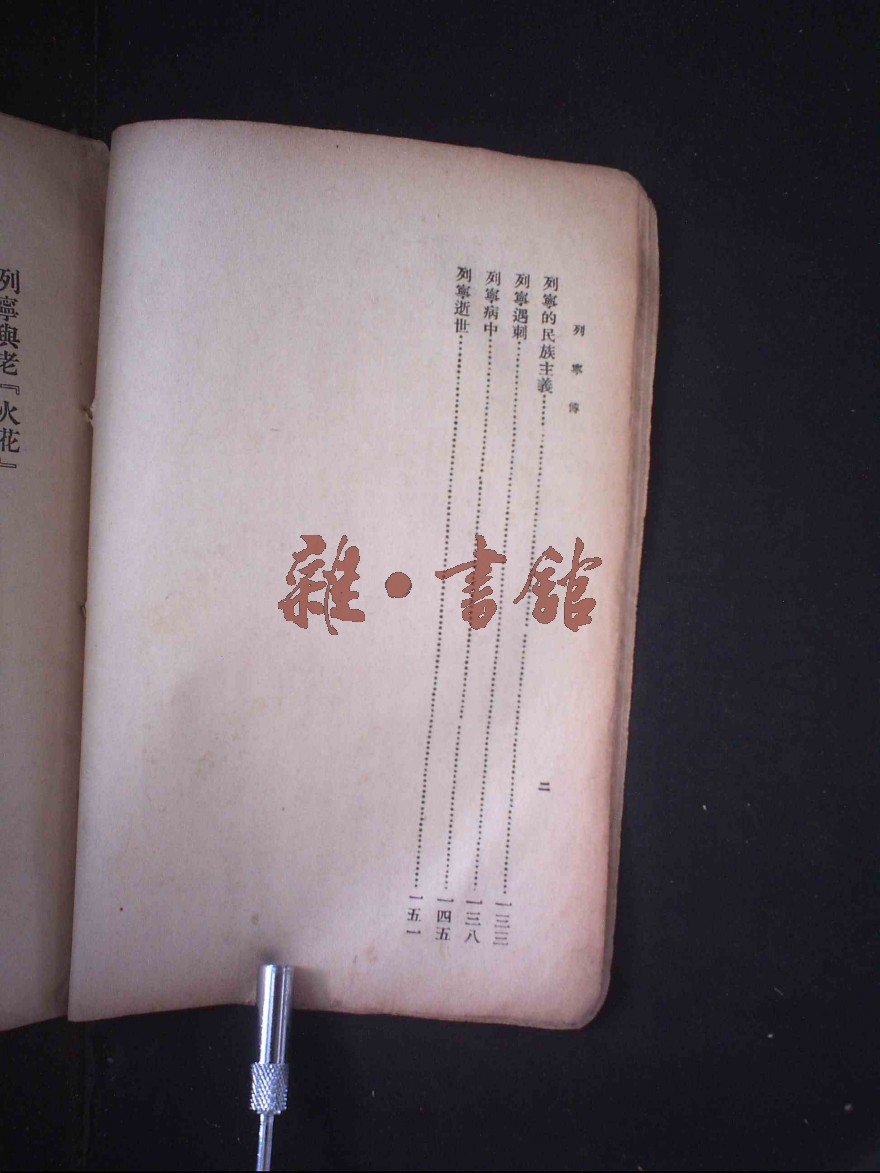 列寧傳
二
列寧的民族主義……一三三
列寧遇刺……一三八
列寧病中……一四五
列寧逝世……一五一
列寧與老『火花』
雜·書館